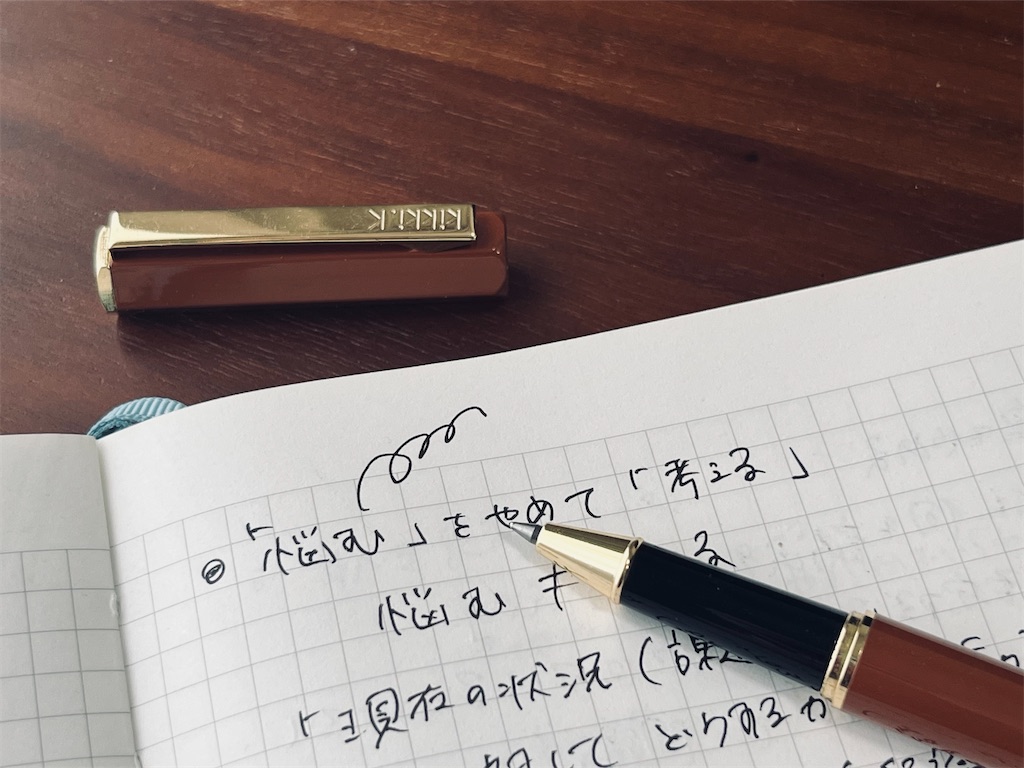 kikki.K
「悩む」をやめて「考える」
悩む ≠ る
「現在の状況（課
して どうするか